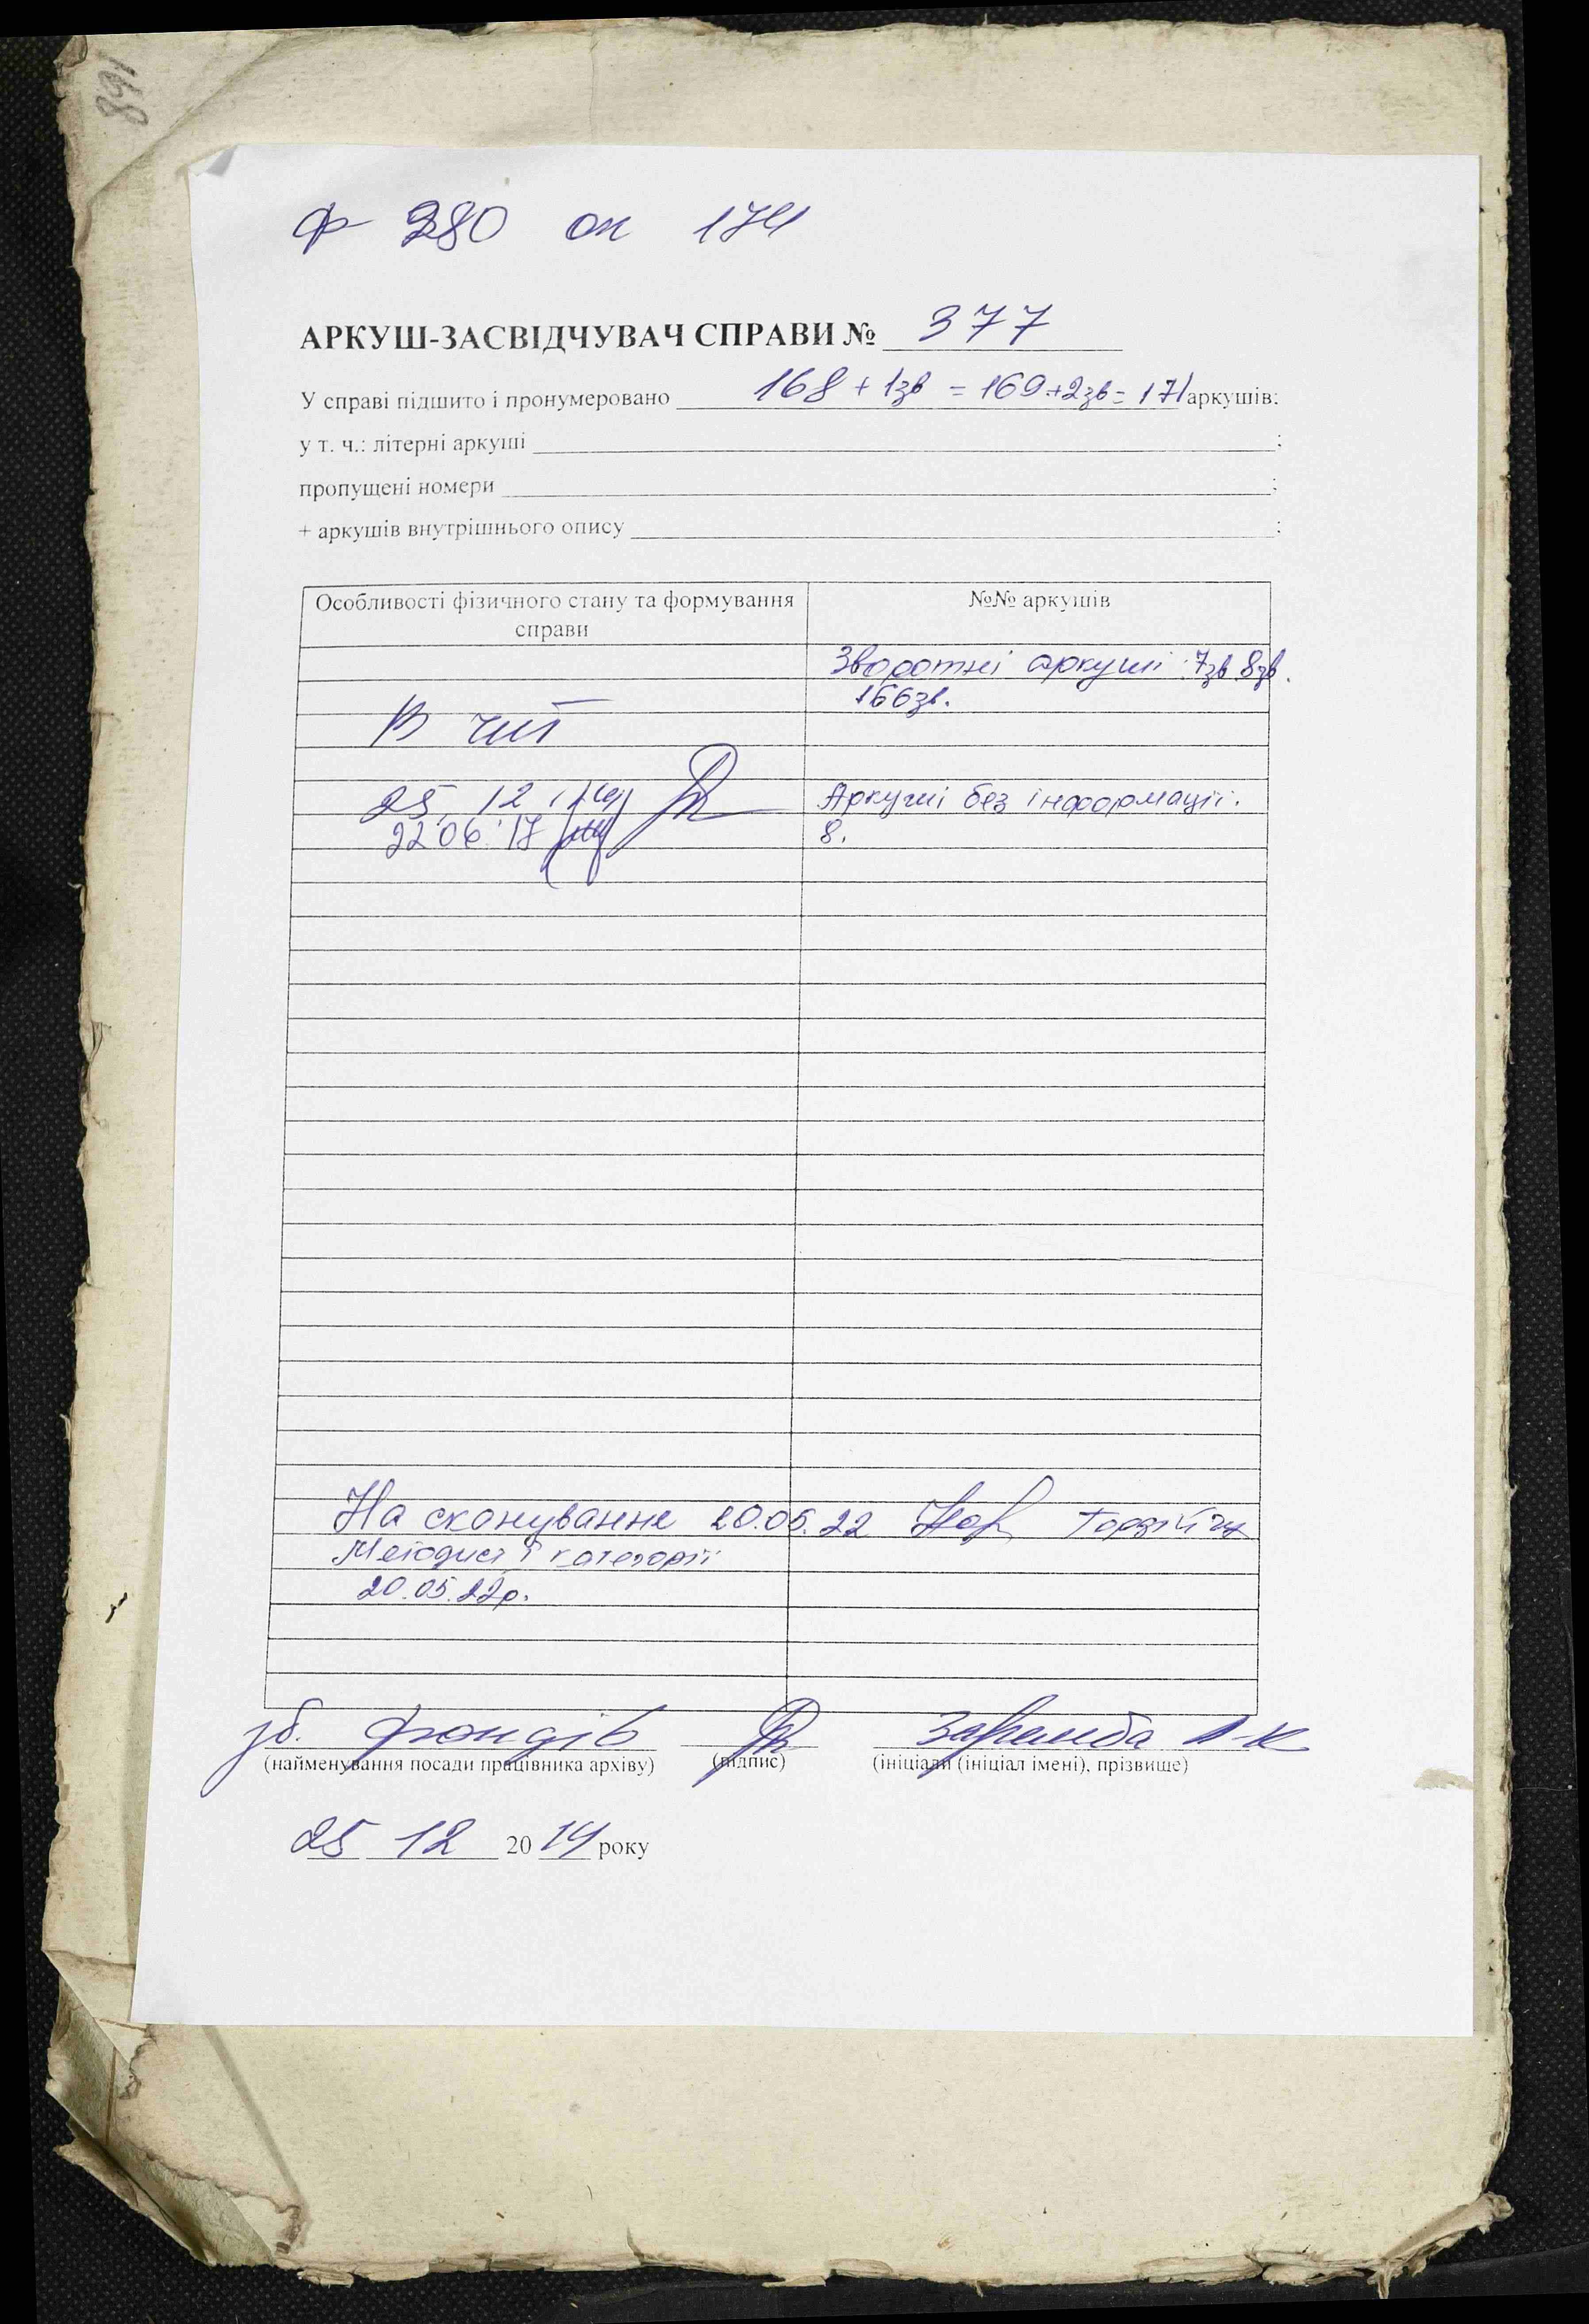 168
ф 280 оп 174
АРКУШ-ЗАСВІДЧУВАЧ СПРАВИ № 377
У справі підшито і пронумеровано 168 + 1зв = 169 +2зв = 171 аркушів;
у т. ч.: літерні аркуші ;
пропущені номери ;
+ аркушів внутрішнього опису ;
Особливості фізичного стану та формування справи №№ аркушів
Зворотні аркуші: 7зв 8зв.
166зв.
В чит
25. 12. 14 Аркуші без інформації.
22 06. 17 8.
На сканування 20.05.22
Методист І категорії
20.05.22р.
зб. фондів Заремба
(найменування посади працівника архіву) (підпис) (ініціали (ініціал імені), прізвище)
25 12 2014 року